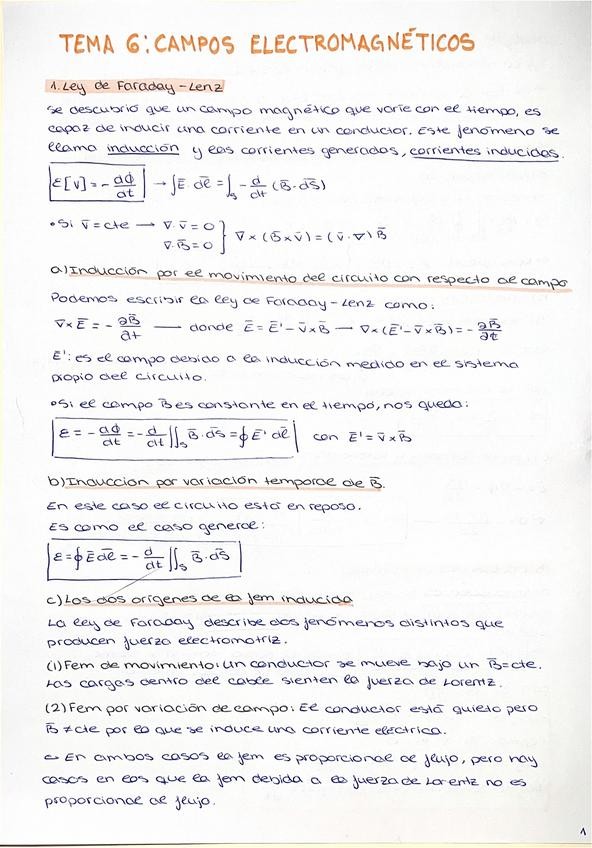 TEMA 6: CAMPOS ELECTROMAGNÉTICOS
1. Ley de Faraday-Lenz
Se descubrió que un campo magnético que varíe con el tiempo, es
capaz de inducir una corriente en un conductor. Este fenómeno se
llama inducción y las corrientes generadas, corrientes inducidas.
ε[V] = - dϕ/dt → ∫ Ē · dl̄ = ∫_S - d/dt (B̄ · dS̄)
• Si v̄ = cte → ∇ · v̄ = 0
∇ · B̄ = 0 } ∇ × (B̄ × v̄) = (v̄ · ∇) B̄
a) Inducción por el movimiento del circuito con respecto al campo
Podemos escribir la ley de Faraday-Lenz como:
∇ × Ē = - ∂B̄/∂t — donde Ē = Ē' - v̄ × B̄ → ∇ × (Ē' - v̄ × B̄) = - ∂B̄/∂t
E': es el campo debido a la inducción medido en el sistema
propio del circuito.
• Si el campo B̄ es constante en el tiempo, nos queda:
ε = - dϕ/dt = - d/dt ∬_S B̄ · dS̄ = ∮ Ē' dl̄ con Ē' = v̄ × B̄
b) Inducción por variación temporal de B̄.
En este caso el circuito está en reposo.
Es como el caso general:
ε = ∮ Ē dl̄ = - d/dt ∬_S B̄ · dS̄
c) Los dos orígenes de la fem inducida
La ley de Faraday describe dos fenómenos distintos que
producen fuerza electromotriz.
(1) Fem de movimiento: Un conductor se mueve bajo un B̄ = cte.
Las cargas dentro del cable sienten la fuerza de Lorentz.
(2) Fem por variación de campo: El conductor está quieto pero
B̄ ≠ cte por lo que se induce una corriente eléctrica.
En ambos casos la fem es proporcional al flujo, pero hay
casos en los que la fem debida a la fuerza de Lorentz no es
proporcional al flujo.
1